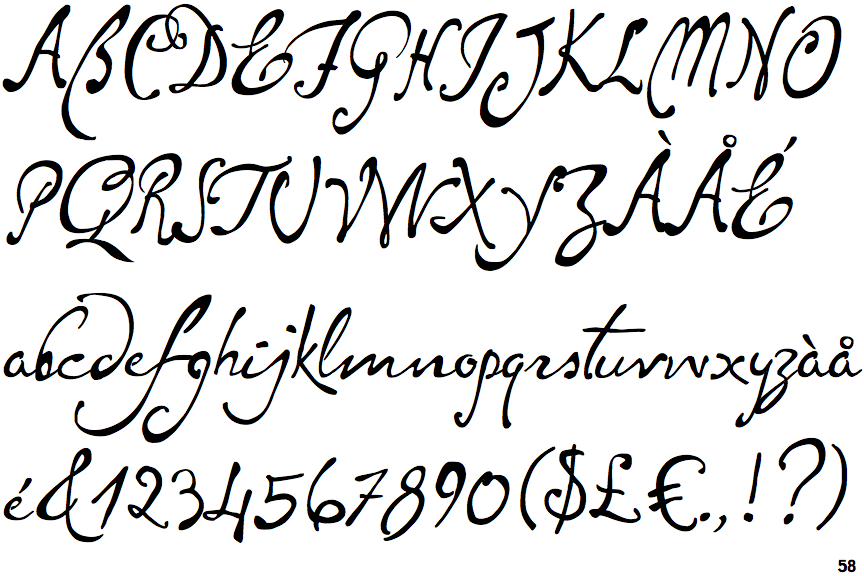 ABCDEFGHIJKLMNO
PQRSTUVWXYZÀÅÉ
abcdefghijklmnopqrstuvwxyzàå
é&1234567890($£€.,!?)
58